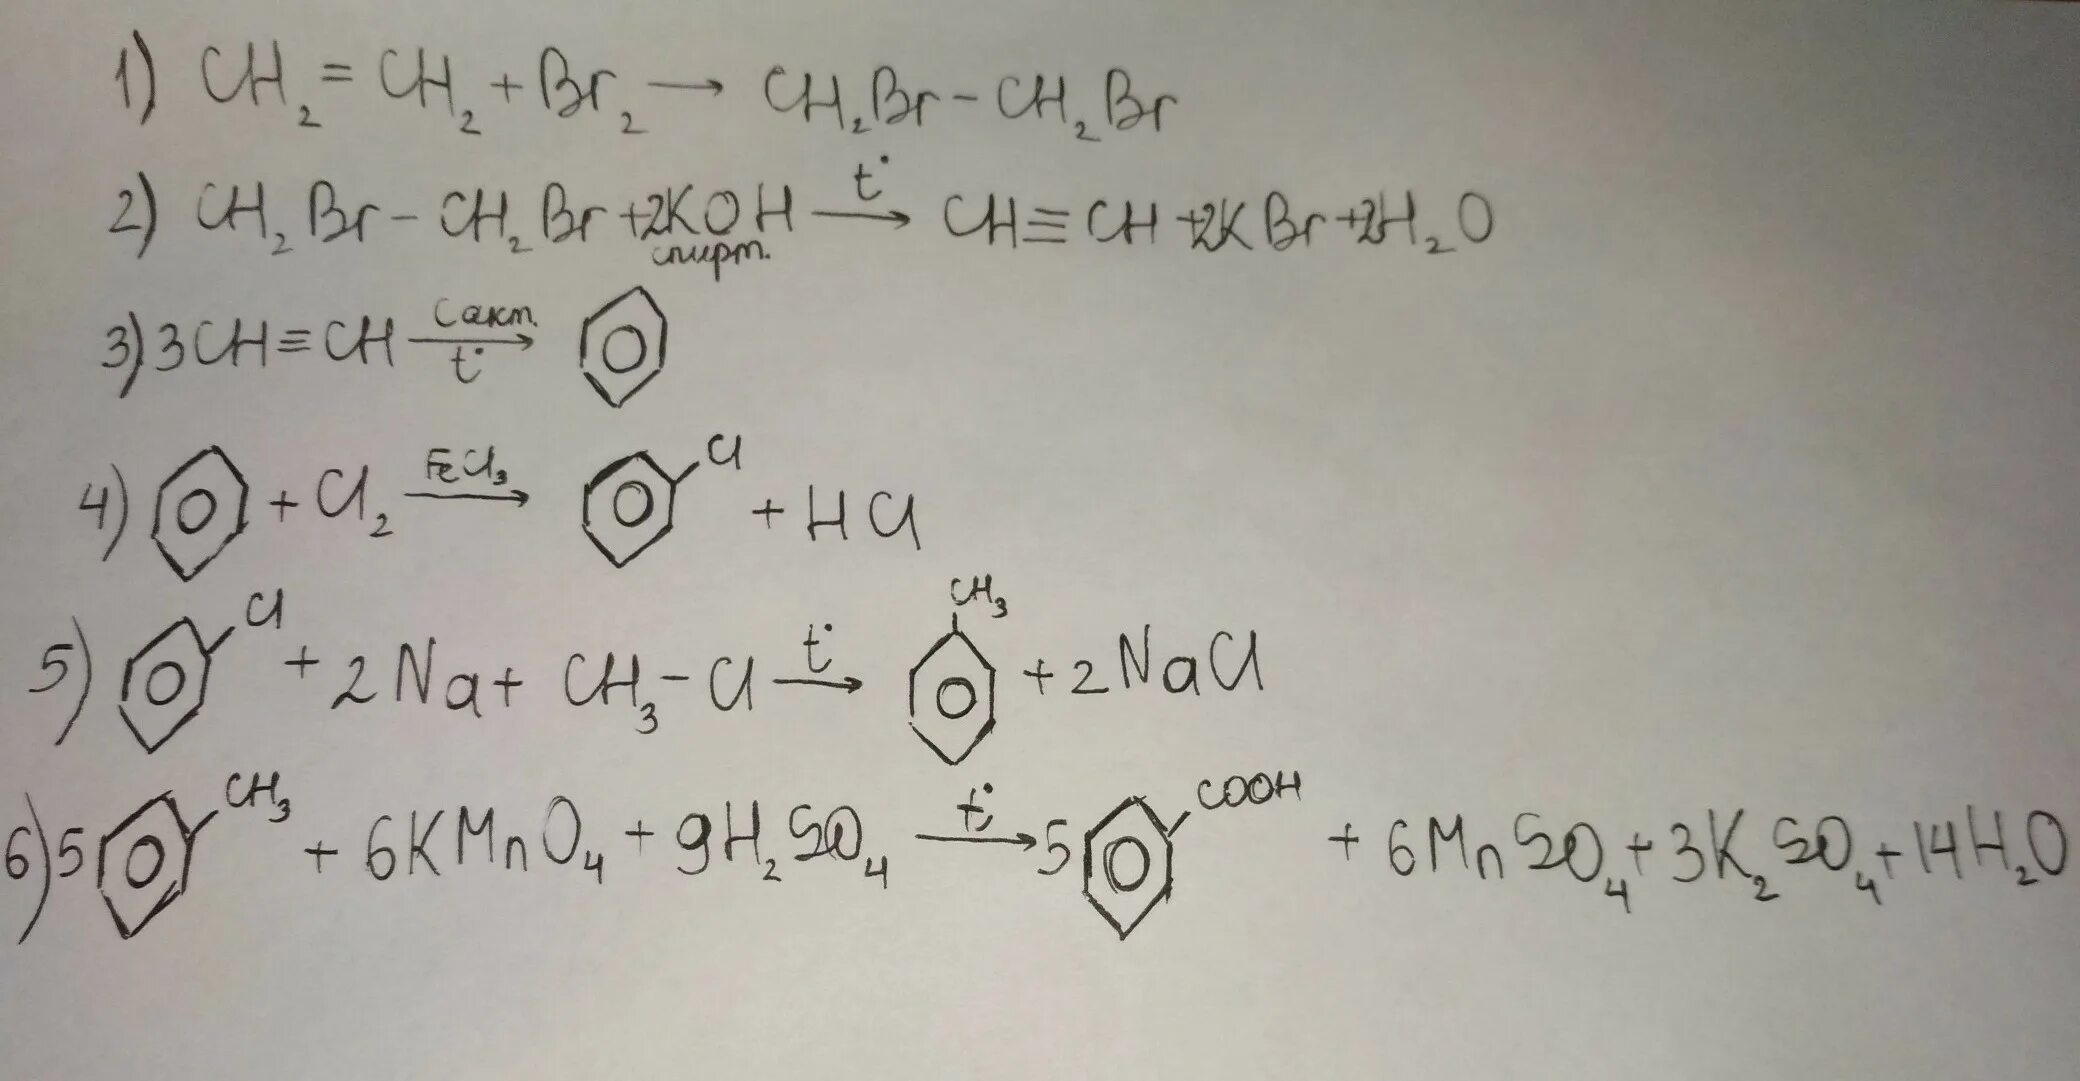 1) CH₂ = CH₂ + Br₂ → CH₂Br – CH₂Br
2) CH₂Br – CH₂Br + 2KOH спирт. t° → CH≡CH + 2KBr + 2H₂O
3) 3CH≡CH C акт. t° →
4) + Cl₂ FeCl₃ → Cl + HCl
5) Cl + 2Na + CH₃–Cl t° → CH₃ + 2NaCl
6) 5 CH₃ + 6KMnO₄ + 9H₂SO₄ t° → 5 COOH + 6MnSO₄ + 3K₂SO₄ + 14H₂O